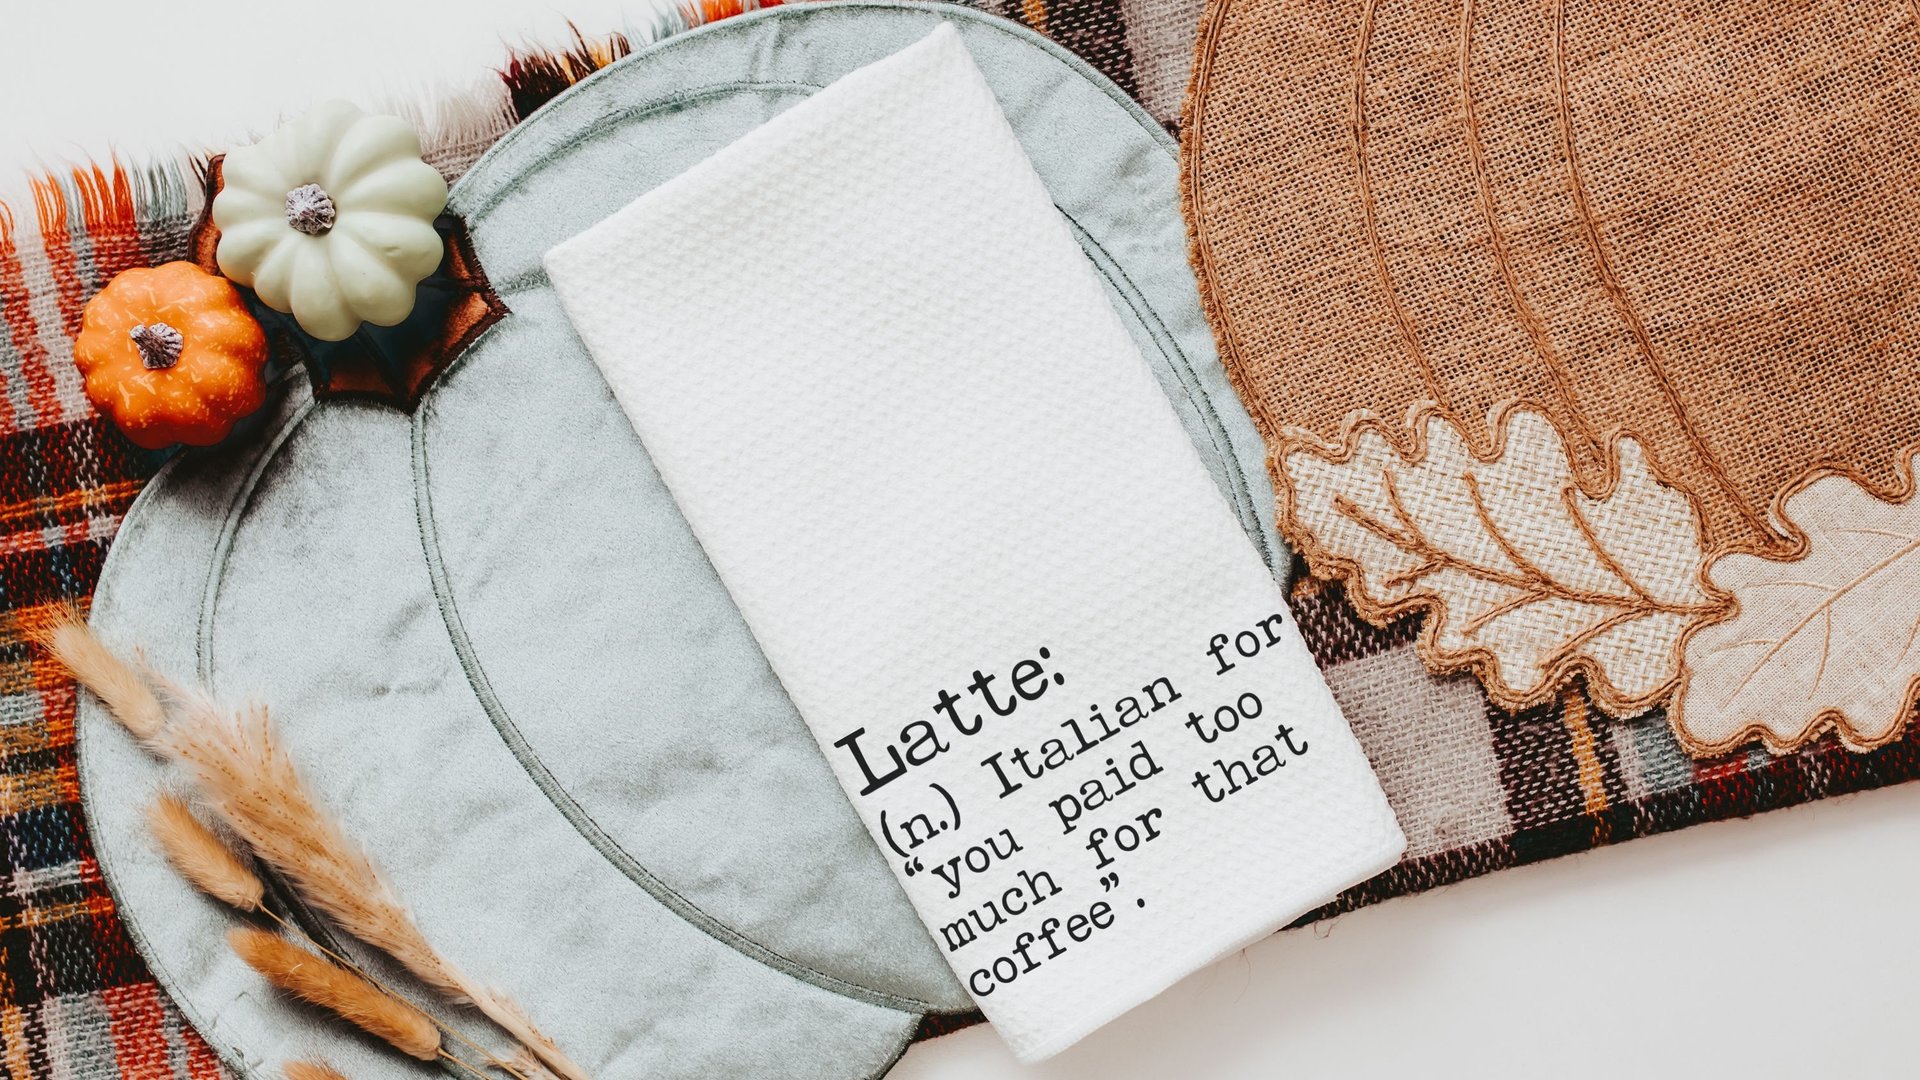 Latte:
(n.) Italian for
“you paid too
much for that
coffee”.